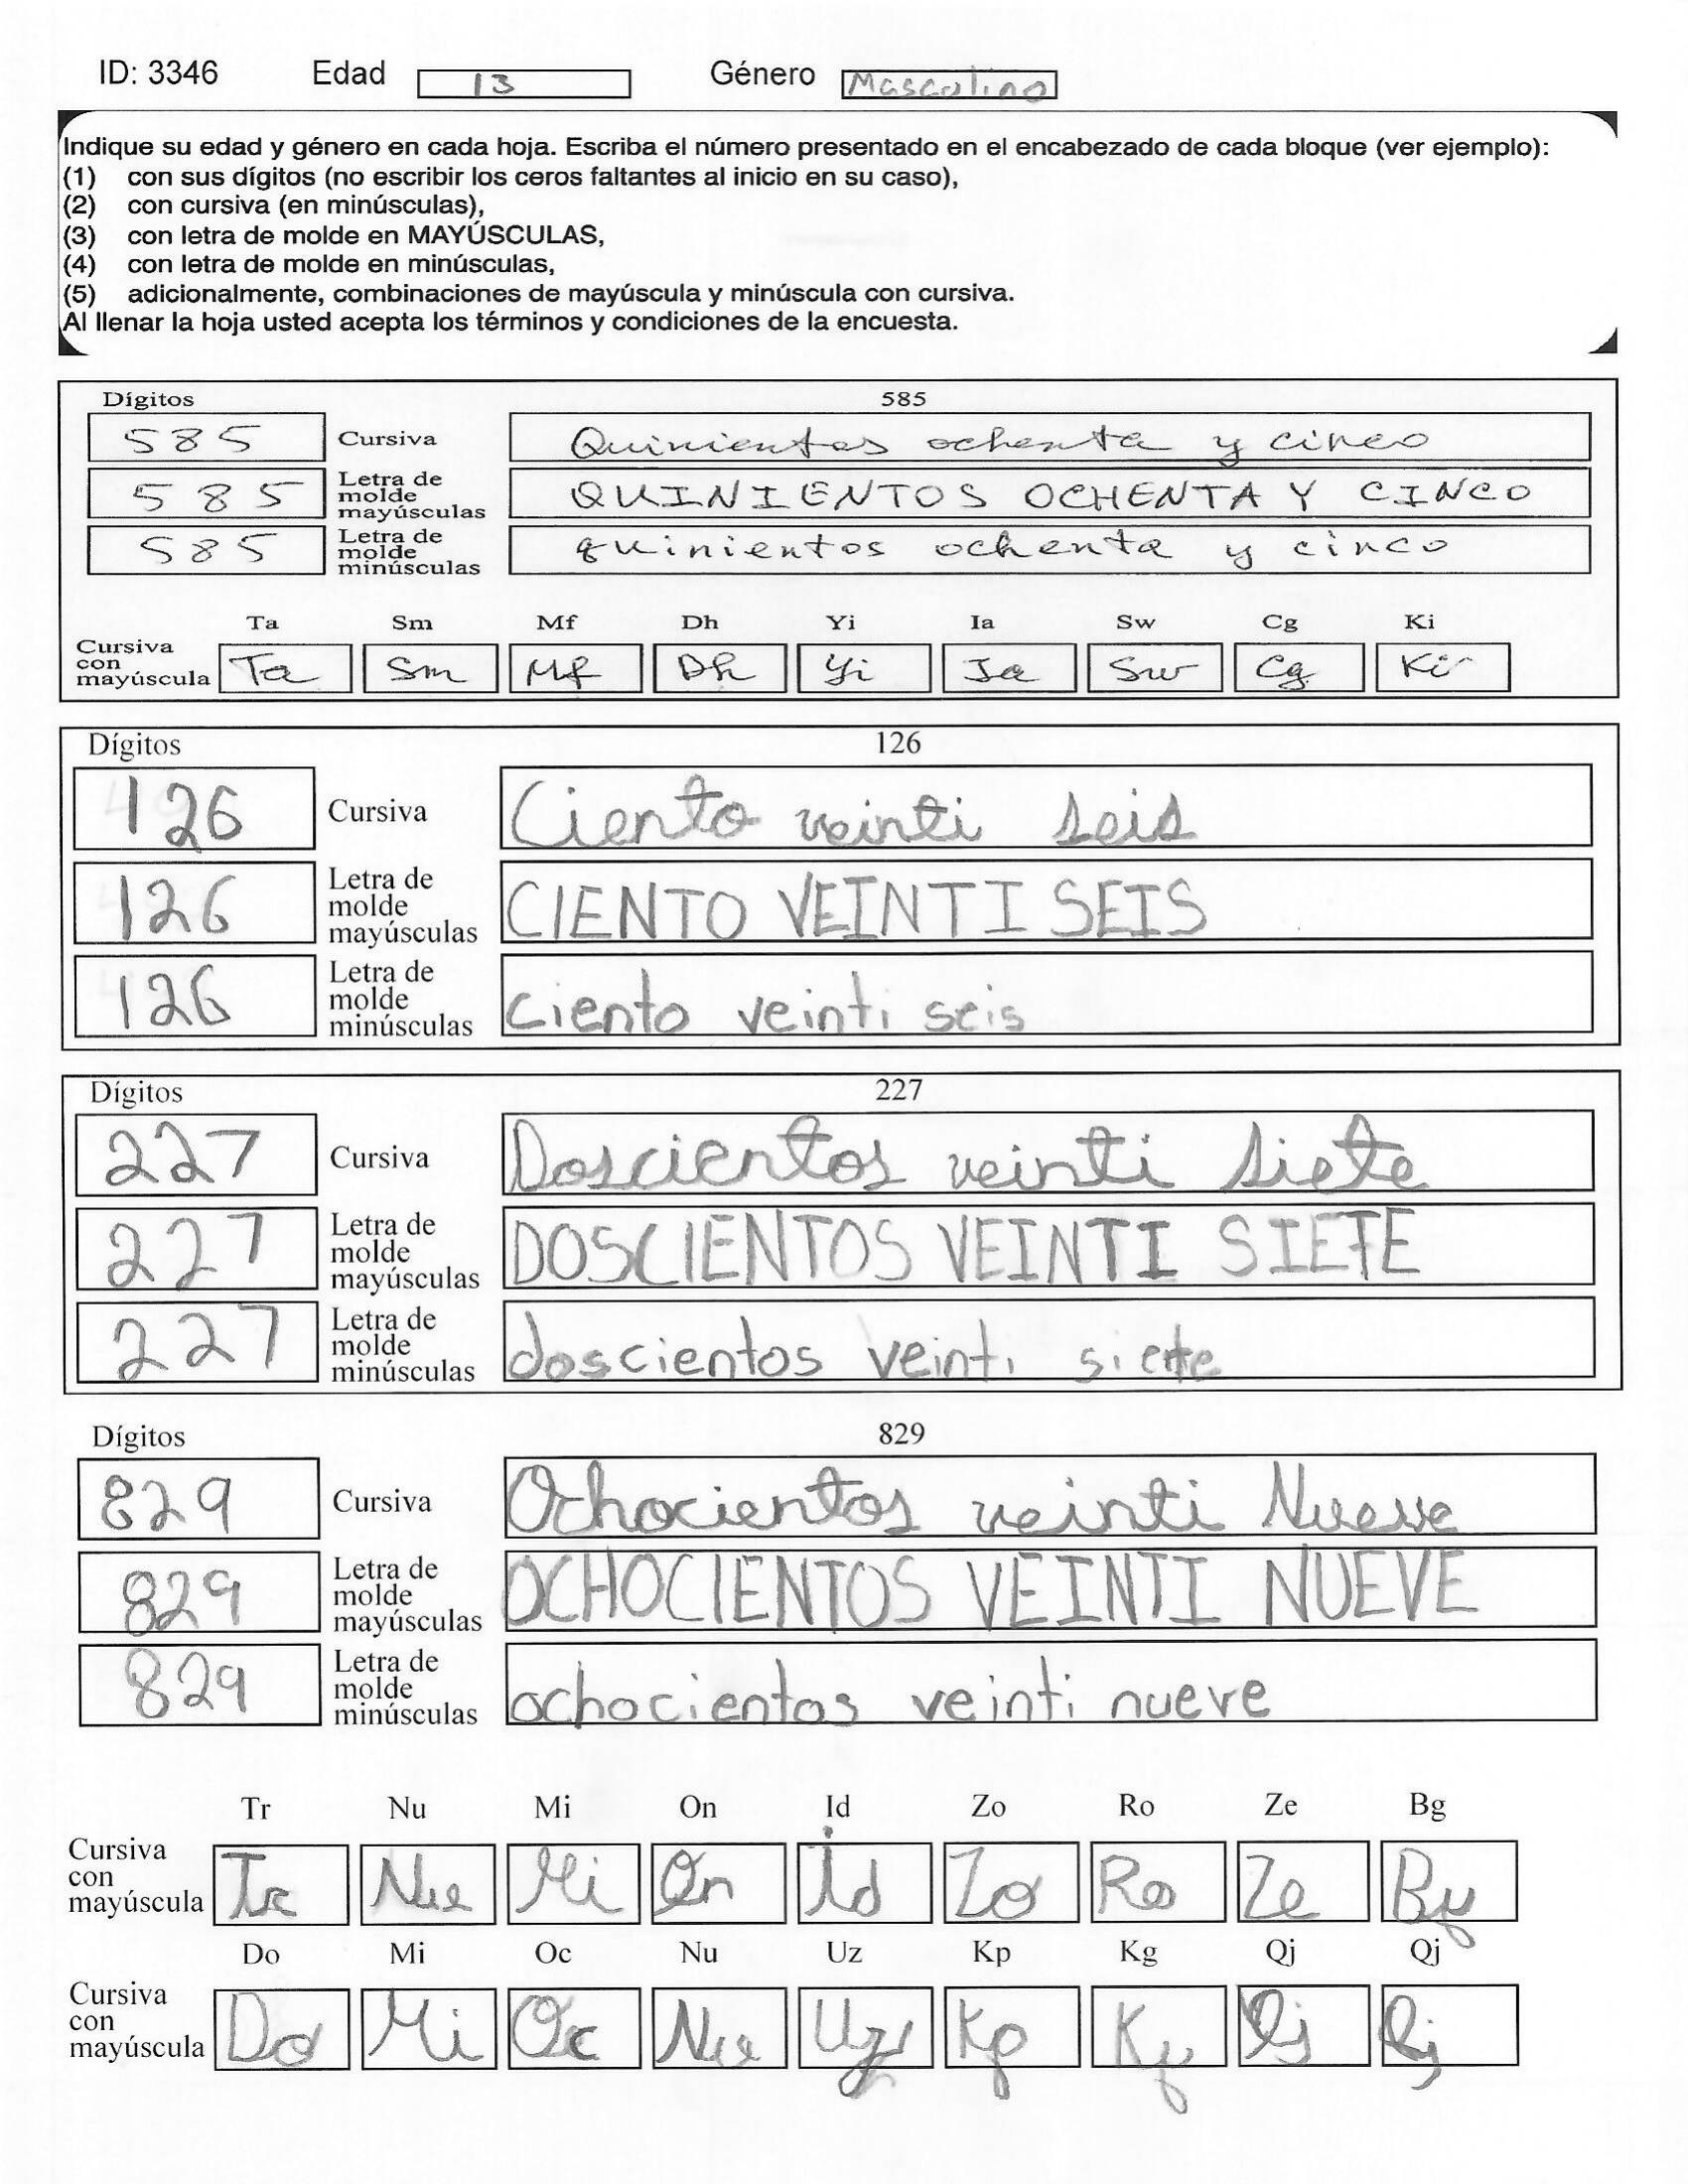 ID: 3346 Edad 13 Género Masculino
Indique su edad y género en cada hoja. Escriba el número presentado en el encabezado de cada bloque (ver ejemplo):
(1) con sus dígitos (no escribir los ceros faltantes al inicio en su caso),
(2) con cursiva (en minúsculas),
(3) con letra de molde en MAYÚSCULAS,
(4) con letra de molde en minúsculas,
(5) adicionalmente, combinaciones de mayúscula y minúscula con cursiva.
Al llenar la hoja usted acepta los términos y condiciones de la encuesta.
Dígitos 585
585 Cursiva Quinientos ochenta y cinco
585 Letra de molde mayúsculas QUINIENTOS OCHENTA Y CINCO
585 Letra de molde minúsculas quinientos ochenta y cinco
Ta Sm Mf Dh Yi Ia Sw Cg Ki
Cursiva con mayúscula Ta Sm Mf Dh Yi Ia Sw Cg Ki
Dígitos 126
126 Cursiva Ciento veinti seis
126 Letra de molde mayúsculas CIENTO VEINTI SEIS
126 Letra de molde minúsculas ciento veinti seis
Dígitos 227
227 Cursiva Doscientos veinti siete
227 Letra de molde mayúsculas DOSCIENTOS VEINTI SIETE
227 Letra de molde minúsculas doscientos veinti siete
Dígitos 829
829 Cursiva Ochocientos veinti Nueve
829 Letra de molde mayúsculas OCHOCIENTOS VEINTI NUEVE
829 Letra de molde minúsculas ochocientos veinti nueve
Tr Nu Mi On Id Zo Ro Ze Bg
Cursiva con mayúscula Tr Nu Mi On Id Zo Ro Ze Bg
Do Mi Oc Nu Uz Kp Kg Qj Qj
Cursiva con mayúscula Do Mi Oc Nu Uz Kp Kg Qj Qj